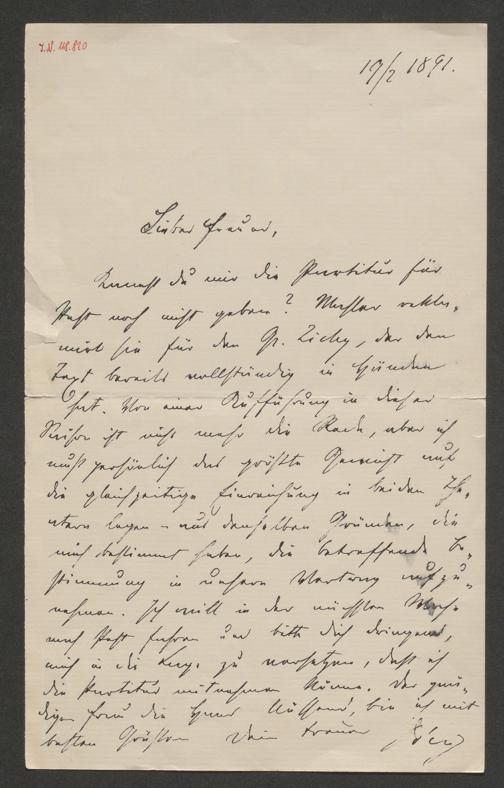 I.N. 118.820
19/2 1891.
Lieber Freund,
Kannst du mir die Partitur für
Pest noch nicht geben? Mahler rekla-
mirt sie für den Gr. Zichy, der den
Text bereits vollständig in Händen
hat. Von einer Aufführung in dieser
Saison ist nicht mehr die Rede, aber ich
muß persönlich das größte Gewicht auf
die gleichzeitige Einreichung in beiden Thea-
tern legen – aus denselben Gründen, die
mich bestimmt haben, die betreffende Be-
stimmung in unsern Vertrag aufzu-
nehmen. Ich will in der nächsten Woche
nach Pest fahren und bitte dich dringend,
mich in die Lage zu versetzen, daß ich
die Partitur mitnehmen könne. Der gnä-
digen Frau die Hand küssend, bin ich mit
besten Grüßen Dein treuer